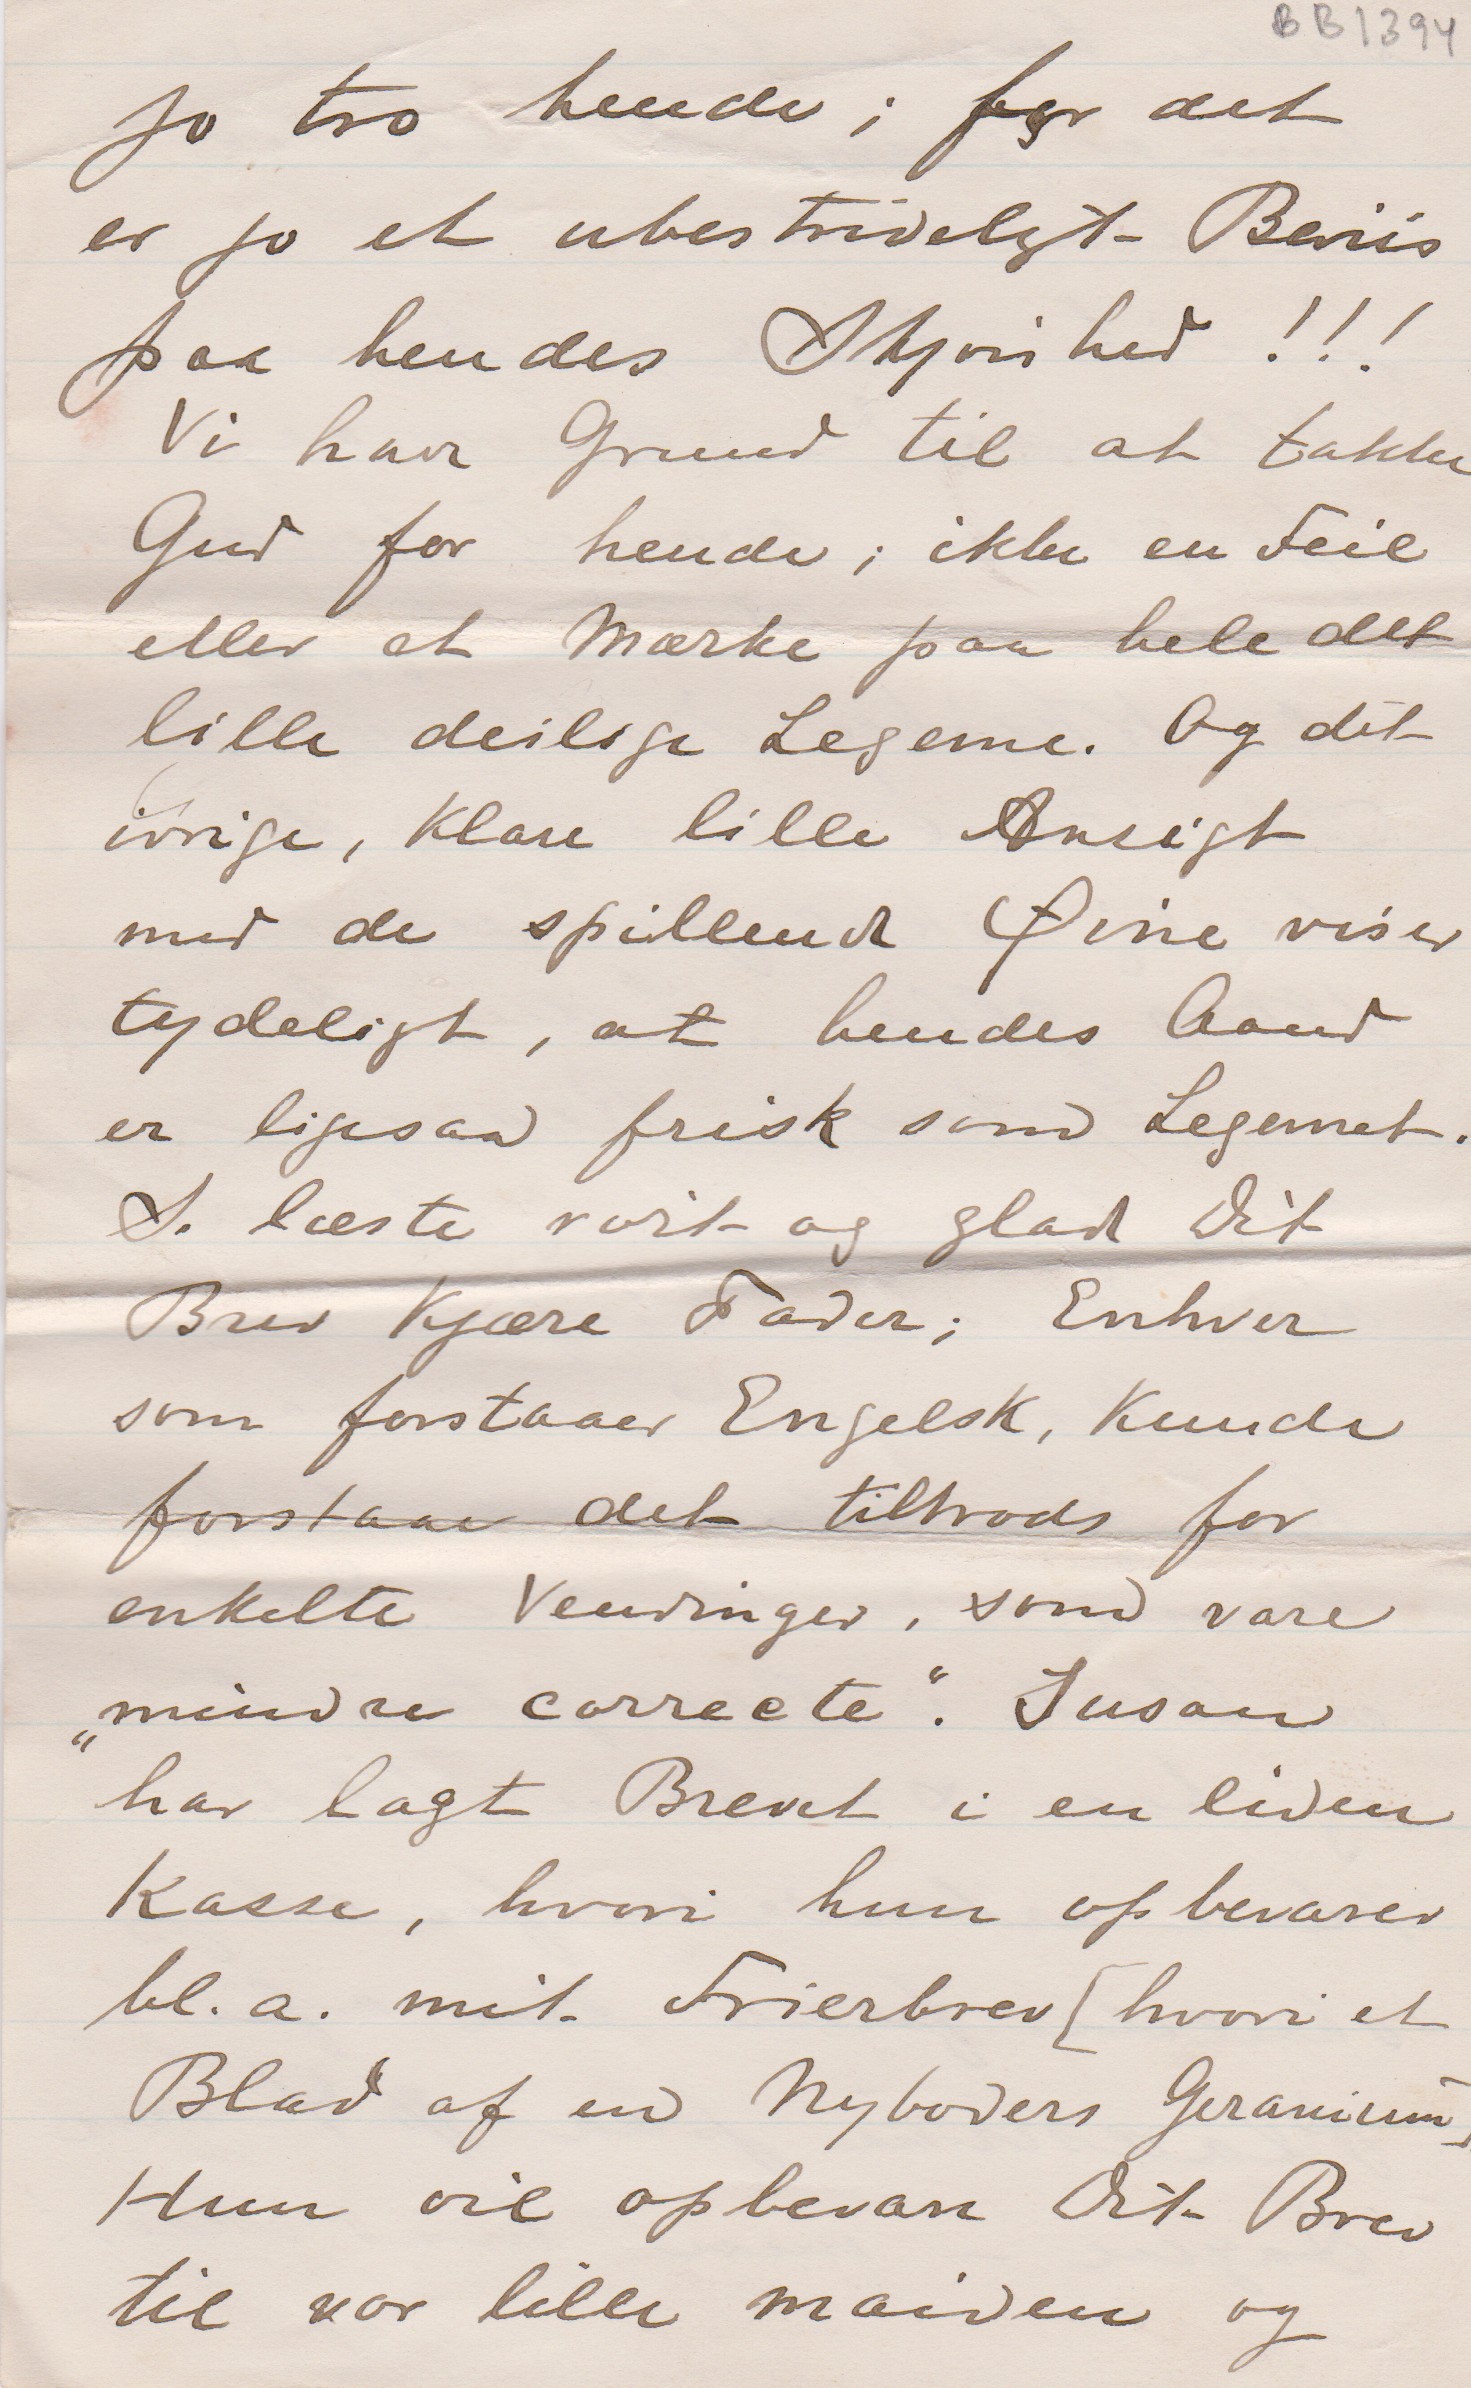 BB1394
jo tro hende; for det
er jo et ubestrideligt Beviis
paa hendes Skjønhed !!!
Vi have Grund til at takke
Gud for hende; ikke en Feil
eller et Mærke paa hele det
lille deilige Legeme. Og det
ivrige, klare lille Ansigt
med de spillende Øine viser
tydeligt, at hendes Aand
er ligesaa frisk som Legemet.
S. læste rørt og glad Dit
Brev Kjære Fader; Enhver
som forstaaer Engelsk, kunde
forstaae det tiltrods for
enkelte Vendinger, som vare
„mindre correcte“. Susan
har lagt Brevet i en liden
Kasse, hvori hun opbevarer
bl. a. mit Frierbrev [hvori et
Blad af en Nyboders Geranium]
Hun vil opbevare Dit Brev
til vor lille maiden og